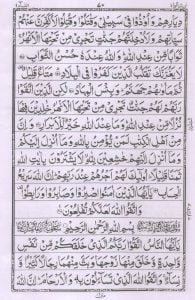 دِيَارِهِمْ وَاُوْذُوْا فِيْ سَبِيْلِيْ وَقٰتَلُوْا وَقُتِلُوْا لَاُكَفِّرَنَّ عَنْهُمْ
سَيِّاٰتِهِمْ وَلَاُدْخِلَنَّهُمْ جَنّٰتٍ تَجْرِيْ مِنْ تَحْتِهَا الْاَنْهٰرُ
ثَوَابًا مِّنْ عِنْدِ اللّٰهِ وَاللّٰهُ عِنْدَهٗ حُسْنُ الثَّوَابِ
لَا يَغُرَّنَّكَ تَقَلُّبُ الَّذِيْنَ كَفَرُوْا فِي الْبِلَادِ مَتَاعٌ قَلِيْلٌ
ثُمَّ مَاْوٰىهُمْ جَهَنَّمُ وَبِئْسَ الْمِهَادُ لٰكِنِ الَّذِيْنَ اتَّقَوْا
رَبَّهُمْ لَهُمْ جَنّٰتٌ تَجْرِيْ مِنْ تَحْتِهَا الْاَنْهٰرُ خٰلِدِيْنَ فِيْهَا
نُزُلًا مِّنْ عِنْدِ اللّٰهِ وَمَا عِنْدَ اللّٰهِ خَيْرٌ لِّلْاَبْرَارِ وَاِنَّ
مِنْ اَهْلِ الْكِتٰبِ لَمَنْ يُّؤْمِنُ بِاللّٰهِ وَمَآ اُنْزِلَ اِلَيْكُمْ وَمَآ
اُنْزِلَ اِلَيْهِمْ خٰشِعِيْنَ لِلّٰهِ لَا يَشْتَرُوْنَ بِاٰيٰتِ اللّٰهِ
ثَمَنًا قَلِيْلًا اُولٰٓئِكَ لَهُمْ اَجْرُهُمْ عِنْدَ رَبِّهِمْ اِنَّ اللّٰهَ سَرِيْعُ
الْحِسَابِ يٰٓاَيُّهَا الَّذِيْنَ اٰمَنُوا اصْبِرُوْا وَصَابِرُوْا وَرَابِطُوْا
وَاتَّقُوا اللّٰهَ لَعَلَّكُمْ تُفْلِحُوْنَ
بِسْمِ اللّٰهِ الرَّحْمٰنِ الرَّحِيْمِ
يٰٓاَيُّهَا النَّاسُ اتَّقُوْا رَبَّكُمُ الَّذِيْ خَلَقَكُمْ مِّنْ نَّفْسٍ
وَّاحِدَةٍ وَّخَلَقَ مِنْهَا زَوْجَهَا وَبَثَّ مِنْهُمَا رِجَالًا كَثِيْرًا وَّ
نِسَآءً وَاتَّقُوا اللّٰهَ الَّذِيْ تَسَآءَلُوْنَ بِهٖ وَالْاَرْحَامَ اِنَّ اللّٰهَ